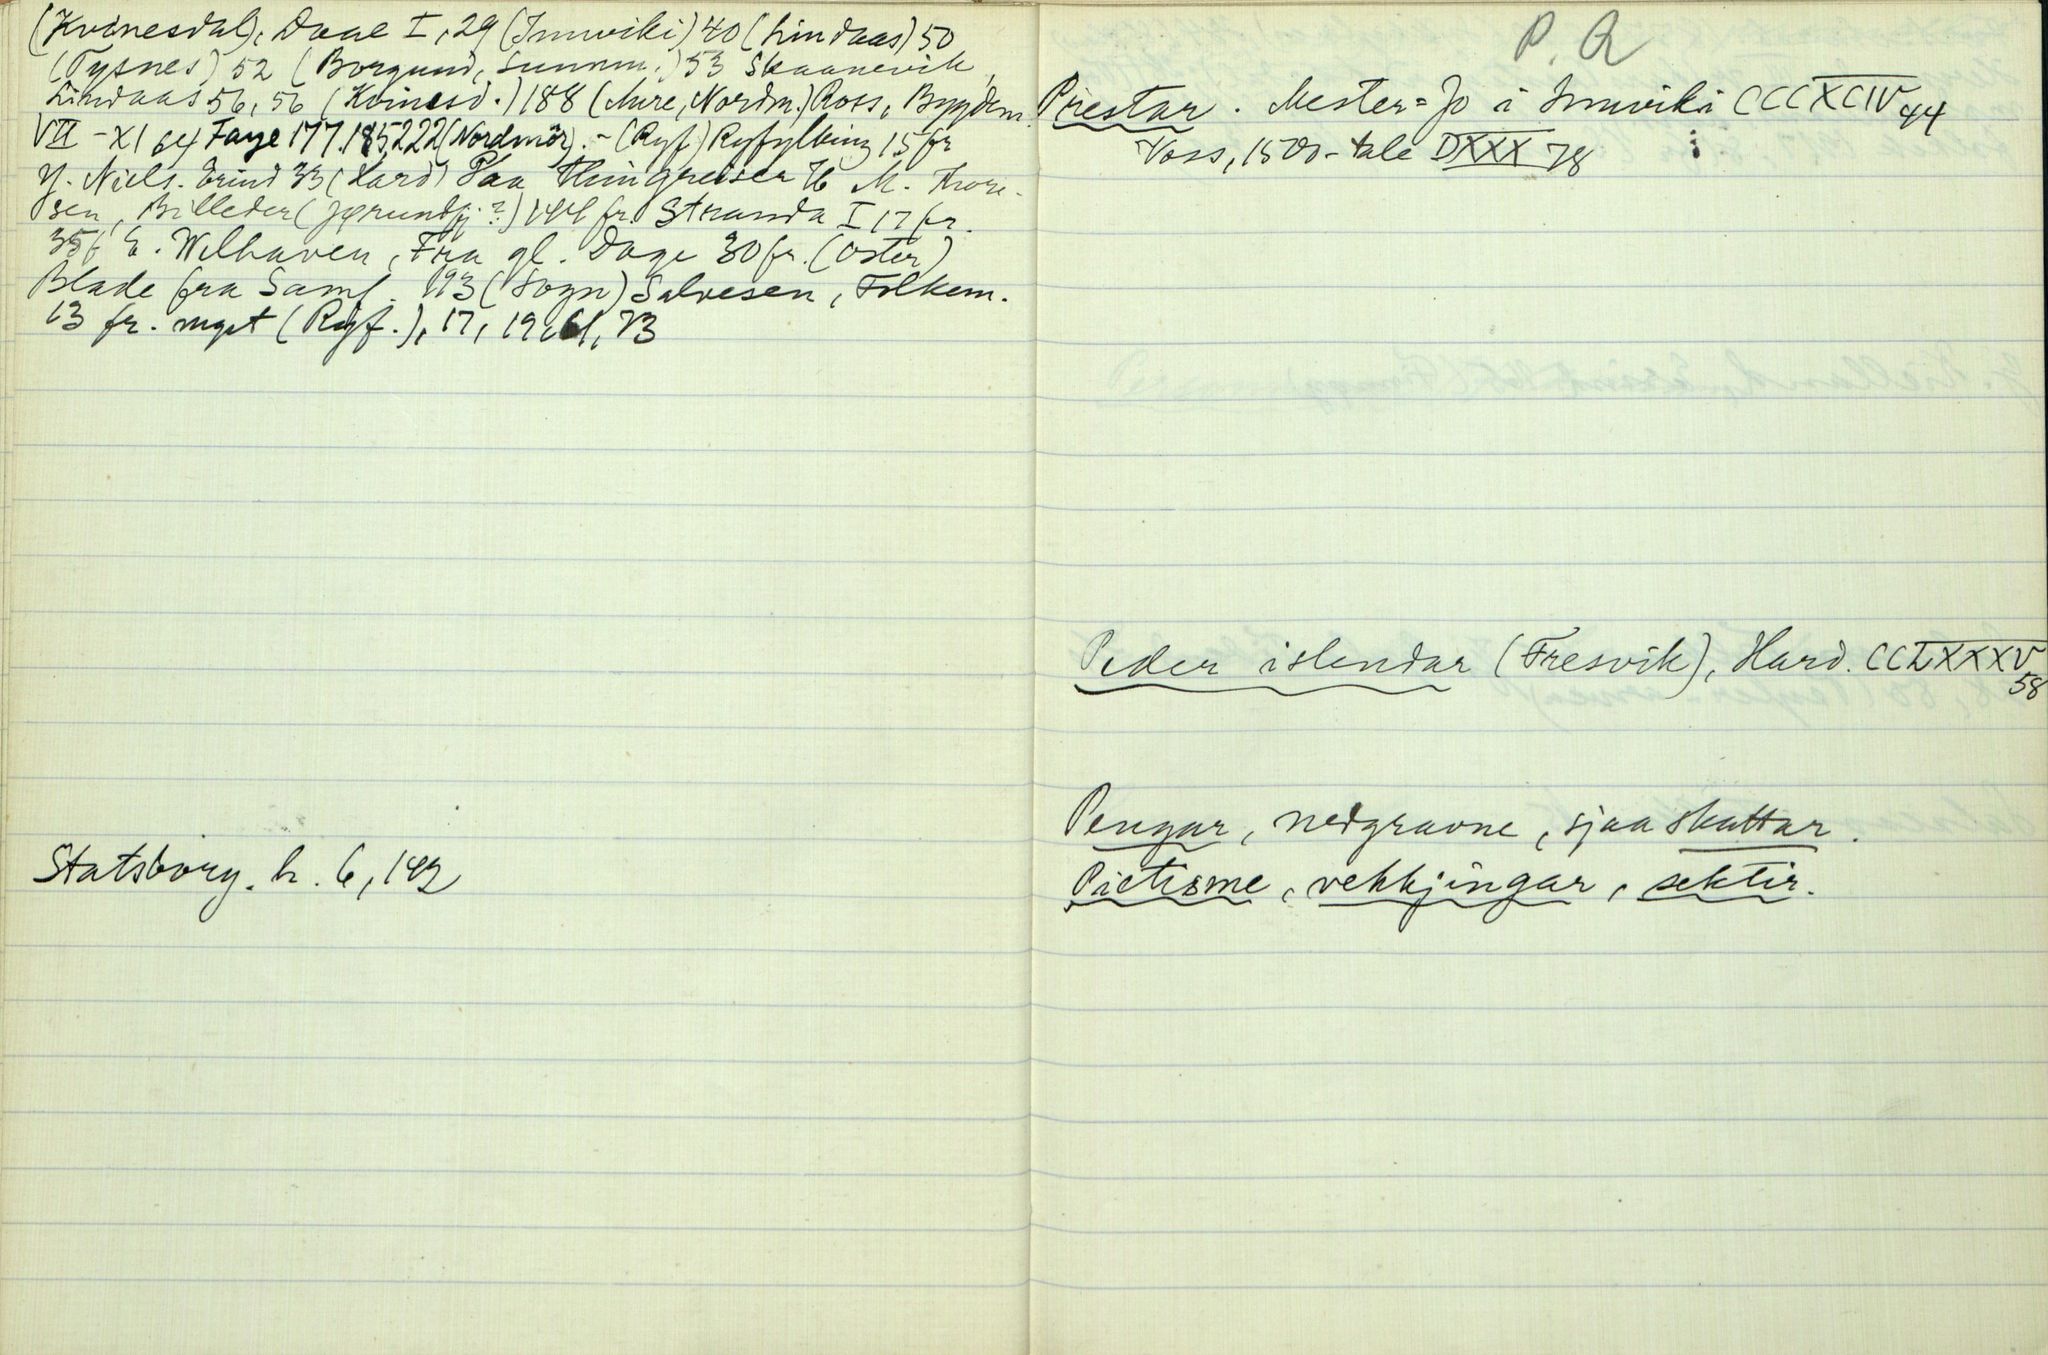 (Kvinesdal), Daae I, 29 (Innviki) 40 (Lindaas) 50
(Tysnes) 52 (Borgund, Sunnm.) 53 Skaanevik,
Lindaas 56, 56 (Kvinesd.) 188 (Aure, Nordm.) Ross, Bygdem.
VII - XI 64 Faye 177. 185, 222 (Nordmör). - (Ryf) Ryfylking 15 fr
Y. Niels. Erind 33 (Hard) Paa 76 M. Thore-
sen, Billeder (Jørundfj.?) 144 fr. Stranda I 17 fr.
356 E. Welhaven, Fra gl. Dage 30 fr. (Oster)
Blade fra Saml. 193 (Sogn) Salvesen, Folkem.
13 fr. mykt (Ryf.), 17, 19, 61, 73
Statsborg. h. 6, 142
P. Q
Prestar. Mester=Jo i Innviki CCCXCIV 44
Voss, 1500-tale DXXX 78
Peder islendar (Fresvik), Hard. CCLXXXV
58
Pengar, nedgravne, sjaa skattar.
Pietisme, vekkjingar, sektir.